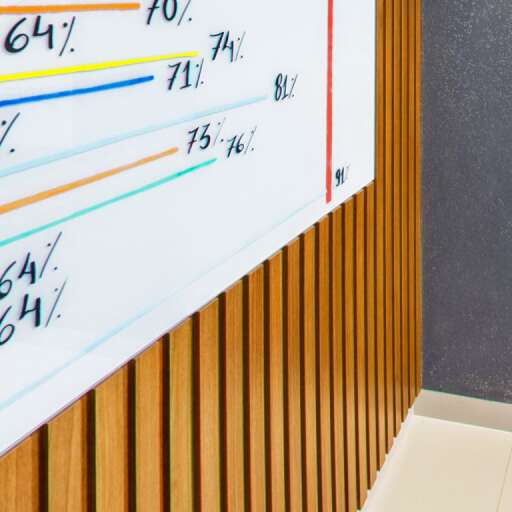 70%
64%
74%
71%
81%
%
73%
76%
91%
64%
64%